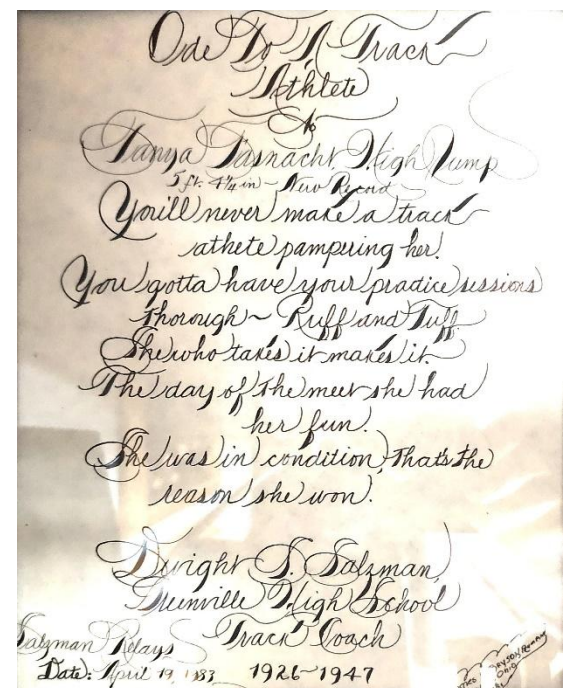 Ode To A Track
Athlete
to
Tanya Fasnacht High Jump
5 ft. 4¼ in ~ New Record ~
You'll never make a track
athete pampering her.
You gotta have your practice sessions
Thorough ~ Ruff and Tuff.
She who takes it makes it.
The day of the meet she had
her fun.
She was in condition, that's the
reason she won.
Dwight S. Salzman,
Greenville High School
Track Coach
1926-1947
Salzman Relays
Date: April 19, 1983
Ohio